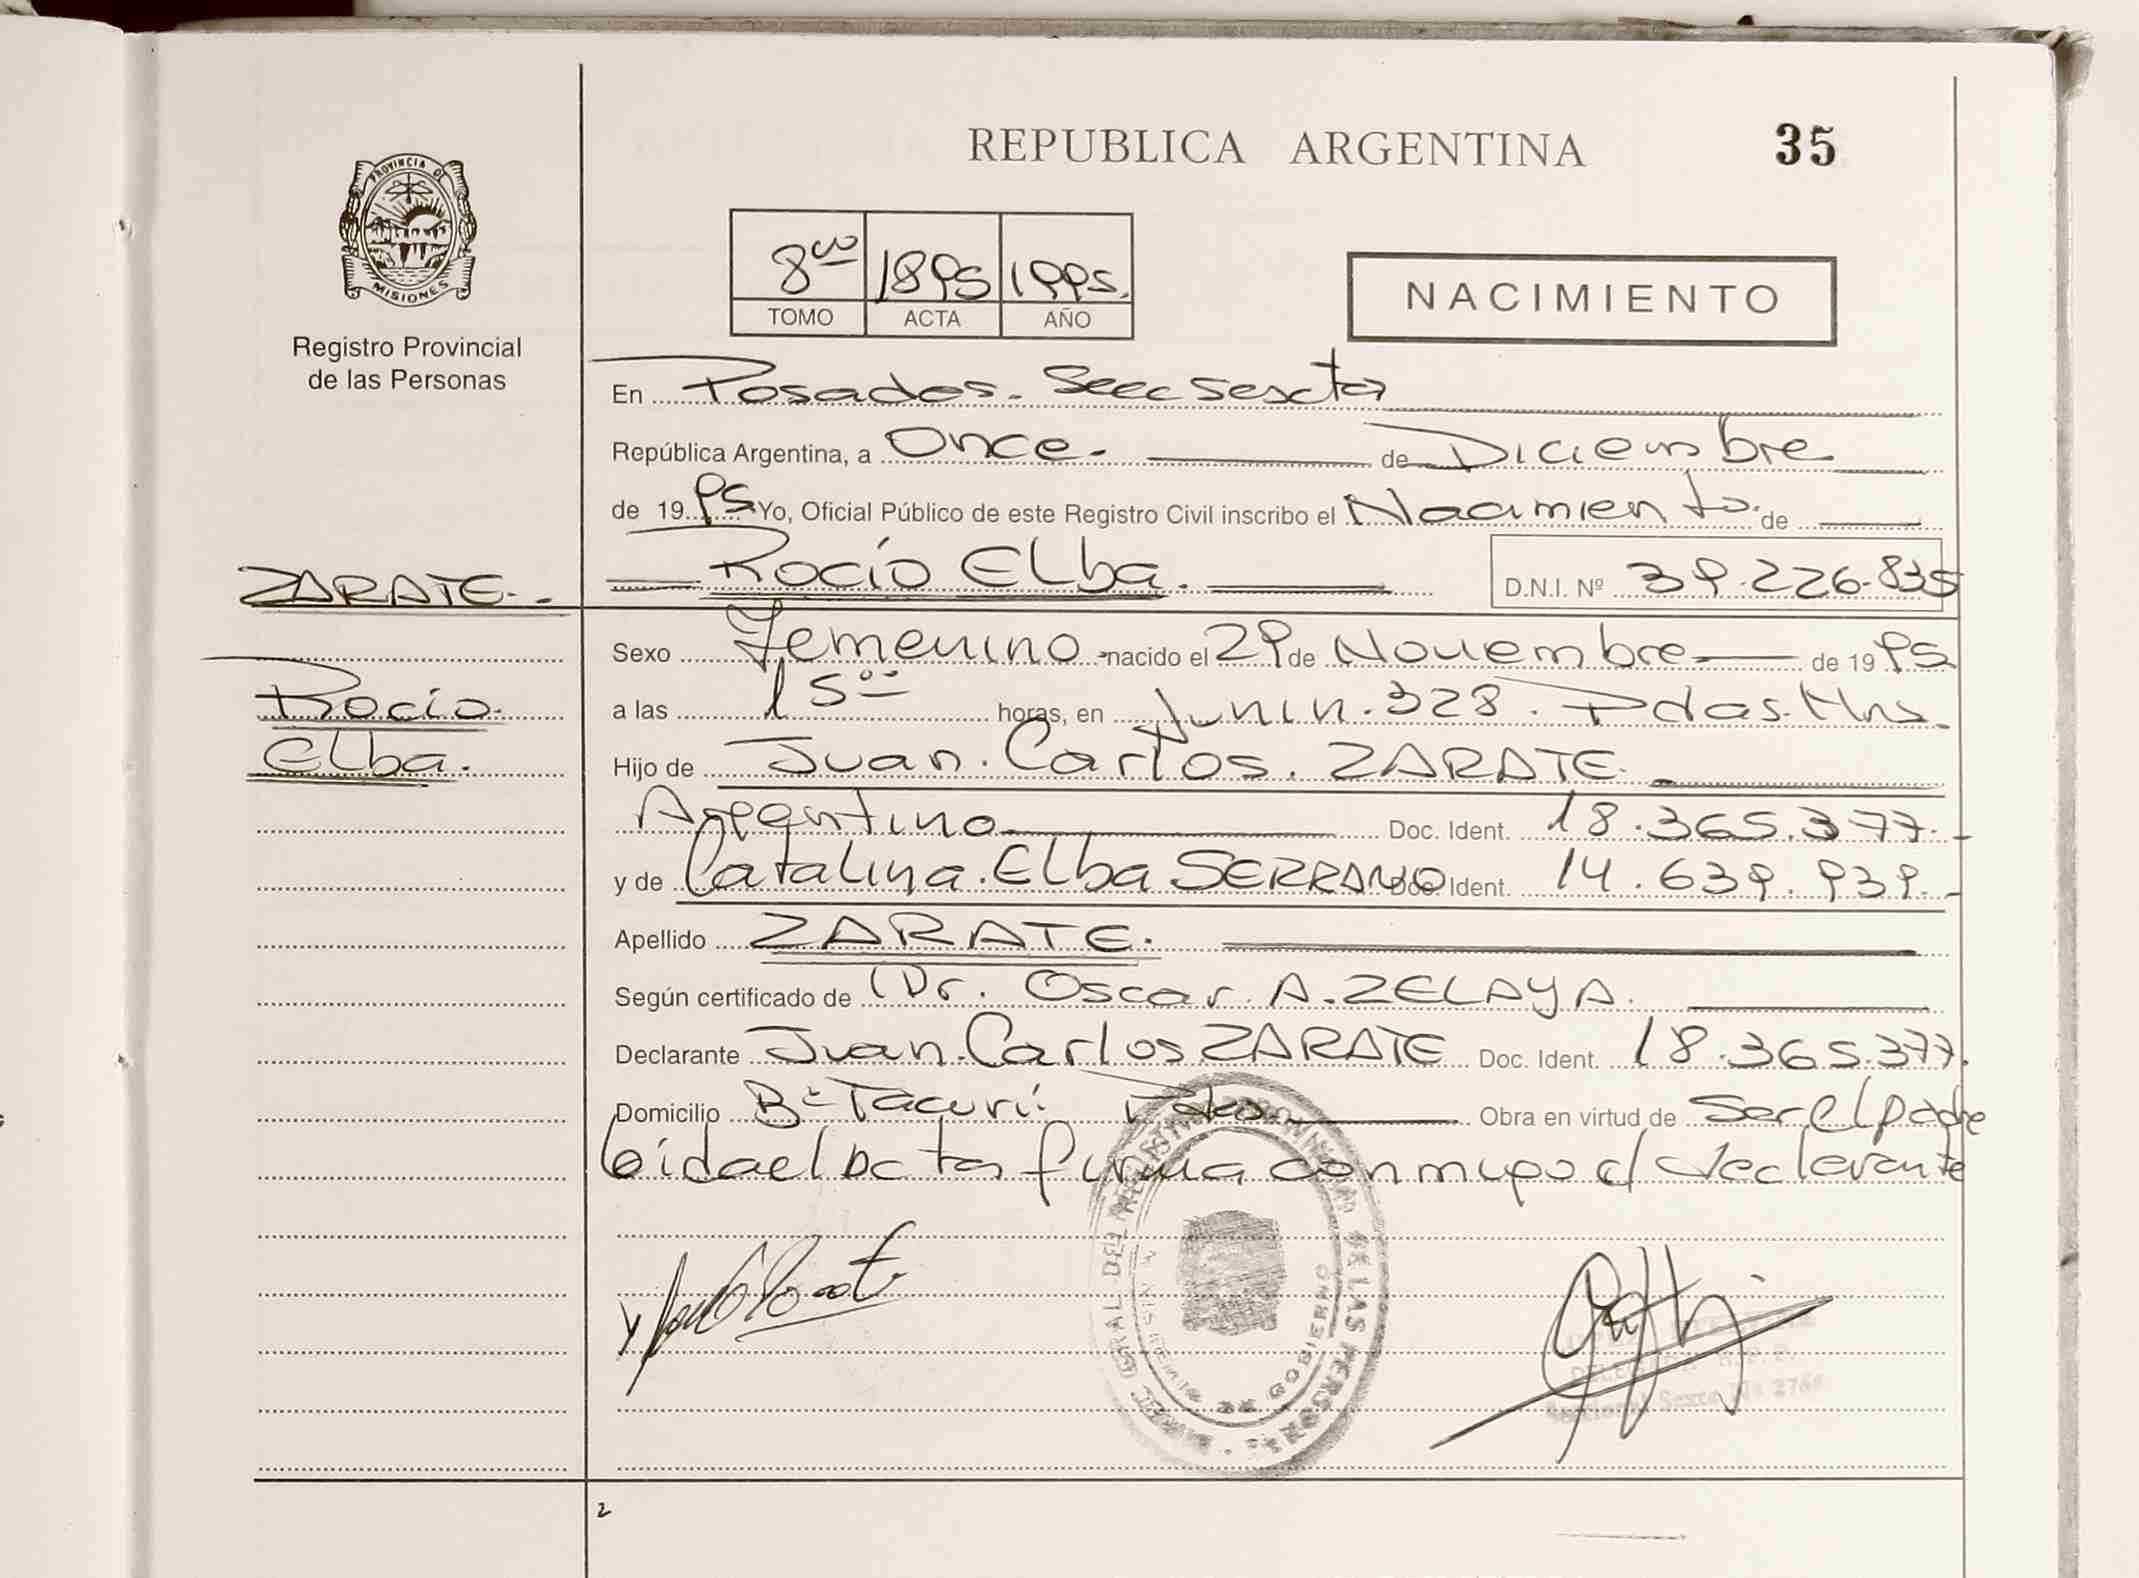 PROVINCIA DE
MISIONES
Registro Provincial
de las Personas
REPUBLICA ARGENTINA 35
8vo 1895 1995.
TOMO ACTA AÑO
NACIMIENTO
En Posadas. Secc Sexta
República Argentina, a Once. de Diciembre
de 1995 Yo, Oficial Público de este Registro Civil inscribo el Nacimiento. de
ZARATE.
Rocío Elba. D.N.I. Nº 39.226.835
Sexo Femenino nacido el 29 de Noviembre de 1995
Rocío
Elba.
a las 15⁰⁰ horas, en Junin. 328. Pdas. Mns.
Hijo de Juan. Carlos. ZARATE.
Argentino Doc. Ident. 18.365.377.-
y de Catalina. Elba SERRANO Doc. Ident. 14.639.939.-
Apellido ZARATE.
Según certificado de Dr. Oscar. A. ZELAYA.
Declarante Juan. Carlos ZARATE Doc. Ident. 18.365.377.
Domicilio Bº Tacurú. Pdas. Obra en virtud de Ser el padre
Leida el Acta firma conmigo el declarante
REGISTRO PROVINCIAL DE LAS PERSONAS
GOBIERNO
Seccional Sexta
2